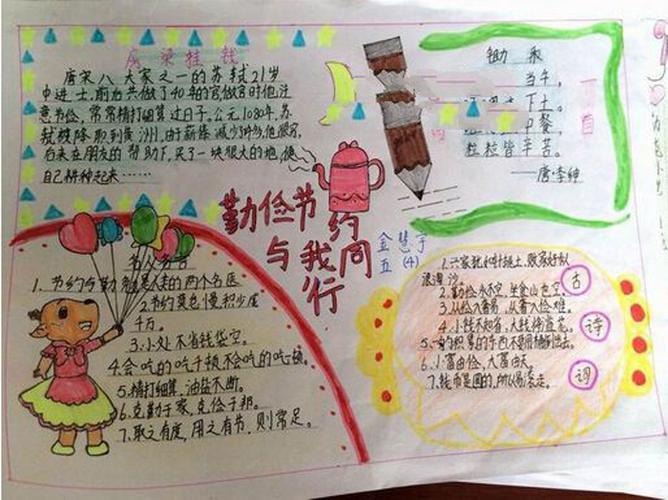 房梁挂钱
唐宋八大家之一的苏轼21岁
中进士,前后共做了40年的官,做官时他注
意节俭,常常精打细算过日子。公元1080年,苏
轼被降职到黄州,由于薪俸减少了许多,他很穷,
后来在朋友的帮助下,买了一块很大的地,便
自己耕种起来……
锄禾
当午,
下土。
中餐,
粒粒皆辛苦。
——唐·李绅
勤俭节约
与我同
行
金慧宇
五(4)
名人名言
1.节约与勤
是人类的两个名医
2.节约莫怠慢,积少成
千万。
3.小处不省钱袋空。
4.会吃的吃千顿,不会吃的吃一顿。
5.精打细算,油盐不断。
6.克勤于家,克俭于邦。
7.取之有度,用之有节,则常足。
古
诗
词
1.兴家犹如针挑土,败家好似
浪淘沙。
2.勤俭永不穷,坐食山也空。
3.从俭入奢易,从奢入俭难。
4.小钱不知省,大钱将滥花。
6.小富由俭,大富由天。
7.钱币是圆的,所以易滚走。